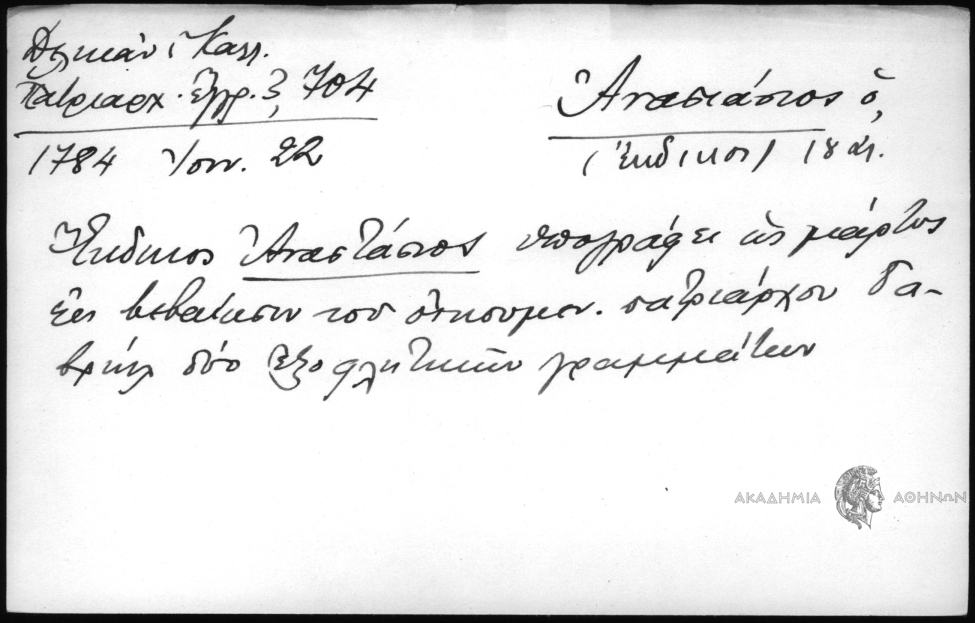 Δελικάν, Καλλ.
Πατριαρχ. Ἔγγρ. 3, 704
1784 Ἰουν. 22
Ἀναστάσιος ὁ,
(Ἔκδικος) 18 αἰ.
Ἔκδικος Ἀναστάσιος ὑπογράφει ὡς μάρτυς
εἰς βεβαίωσιν τοῦ οἰκουμεν. πατριάρχου Γα-
βριὴλ δύο ἐξοφλητικῶν γραμμάτων
ΑΚΑΔΗΜΙΑ ΑΘΗΝΩΝ